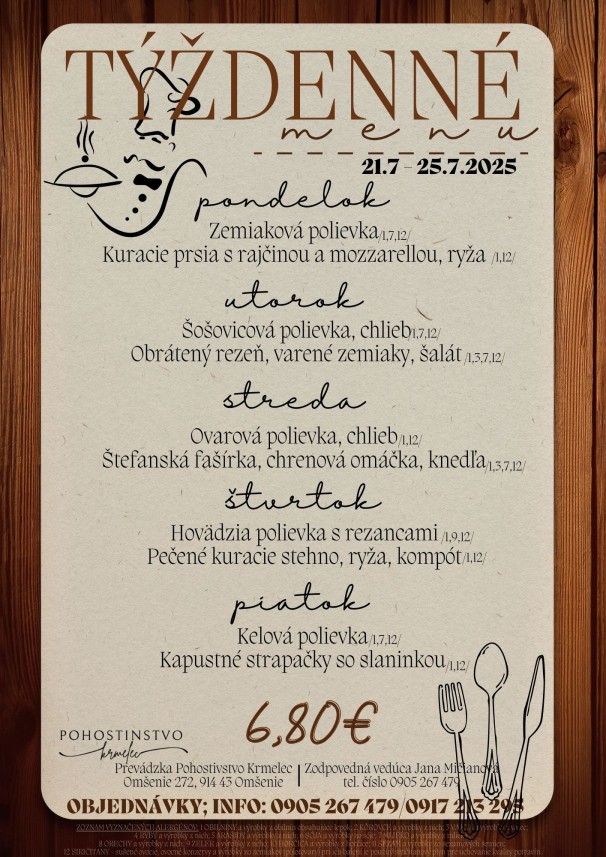 TÝŽDENNÉ
menu
21.7 - 25.7.2025
pondelok
Zemiaková polievka/1,7,12/
Kuracie prsia s rajčinou a mozzarellou, ryža /1,12/
utorok
Šošovicová polievka, chlieb/1,7,12/
Obrátený rezeň, varené zemiaky, šalát /1,3,7,12/
streda
Ovarová polievka, chlieb/1,12/
Štefanská fašírka, chrenová omáčka, knedľa/1,3,7,12/
štvrtok
Hovädzia polievka s rezancami /1,9,12/
Pečené kuracie stehno, ryža, kompót/1,12/
piatok
Kelová polievka/1,7,12/
Kapustné strapačky so slaninkou/1,12/
6,80€
POHOSTINSTVO
krmelec
Prevádzka Pohostivstvo Krmelec | Zodpovedná vedúca Jana Mičianová
Omšenie 272, 914 43 Omšenie | tel. číslo 0905 267 479
OBJEDNÁVKY; INFO: 0905 267 479/0917 213 295
ZOZNAM VYZNAČENÝCH ALERGÉNOV: 1 OBILNINY